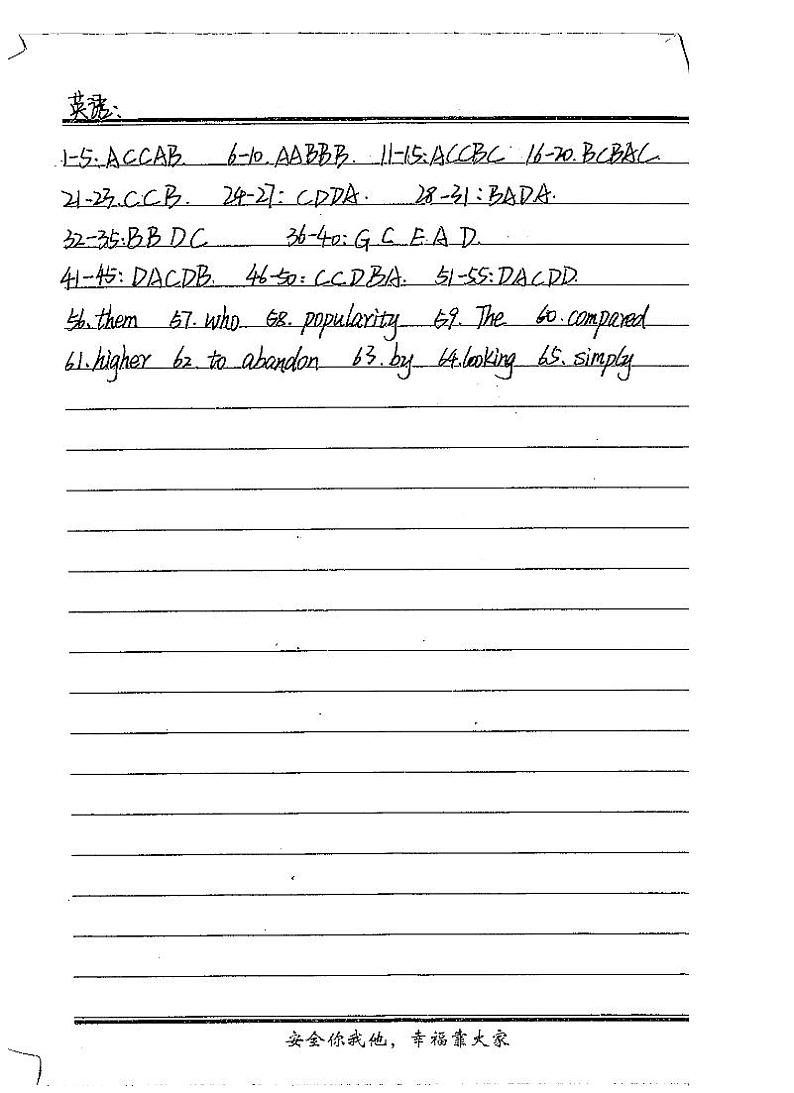 英语:
1-5: ACCAB. 6-10. AABBB. 11-15: ACCBC 16-20. BCBAC
21-23. CCB. 24-27: CDDA. 28-31: BADA.
32-35: BBDC 36-40: GCEAD.
41-45: DACDB. 46-50: CCDBA. 51-55: DACDD.
56. them 57. who 58. popularity 59. The 60. compared
61. higher 62. to abandon 63. by 64. looking 65. simply
安全你我他，幸福靠大家